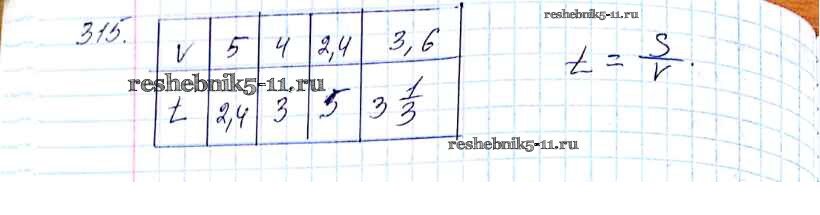 reshebnik5-11.ru
315.
v 5 4 2,4 3,6
t = S/v.
reshebnik5-11.ru
t 2,4 3 5 3 1/3
reshebnik5-11.ru